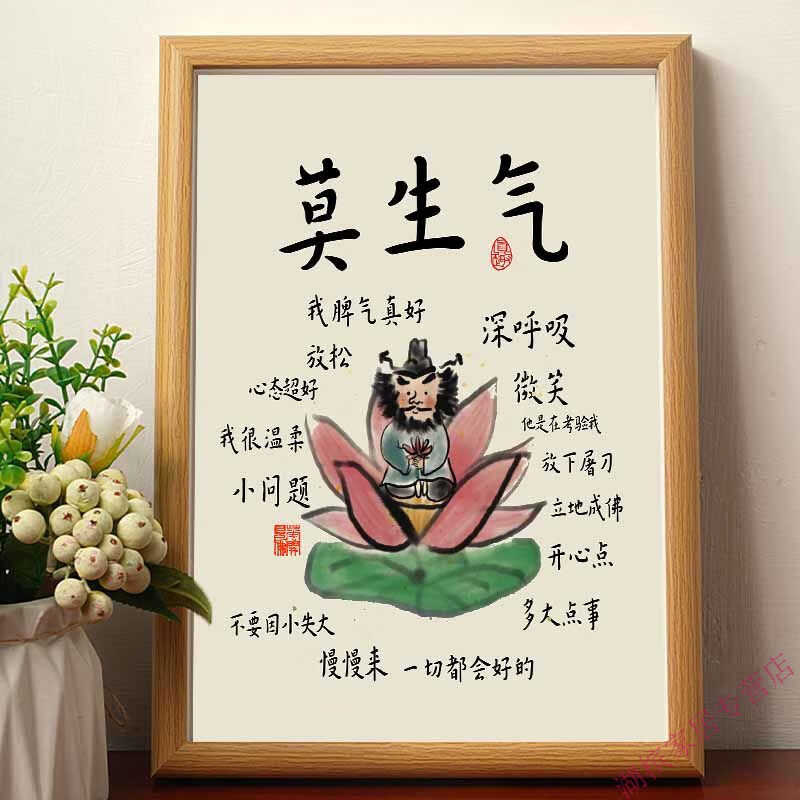 莫生气
我脾气真好
放松
心态超好
我很温柔
小问题
不要因小失大
慢慢来
一切都会好的
深呼吸
微笑
他是在考验我
放下屠刀
立地成佛
开心点
多大点事